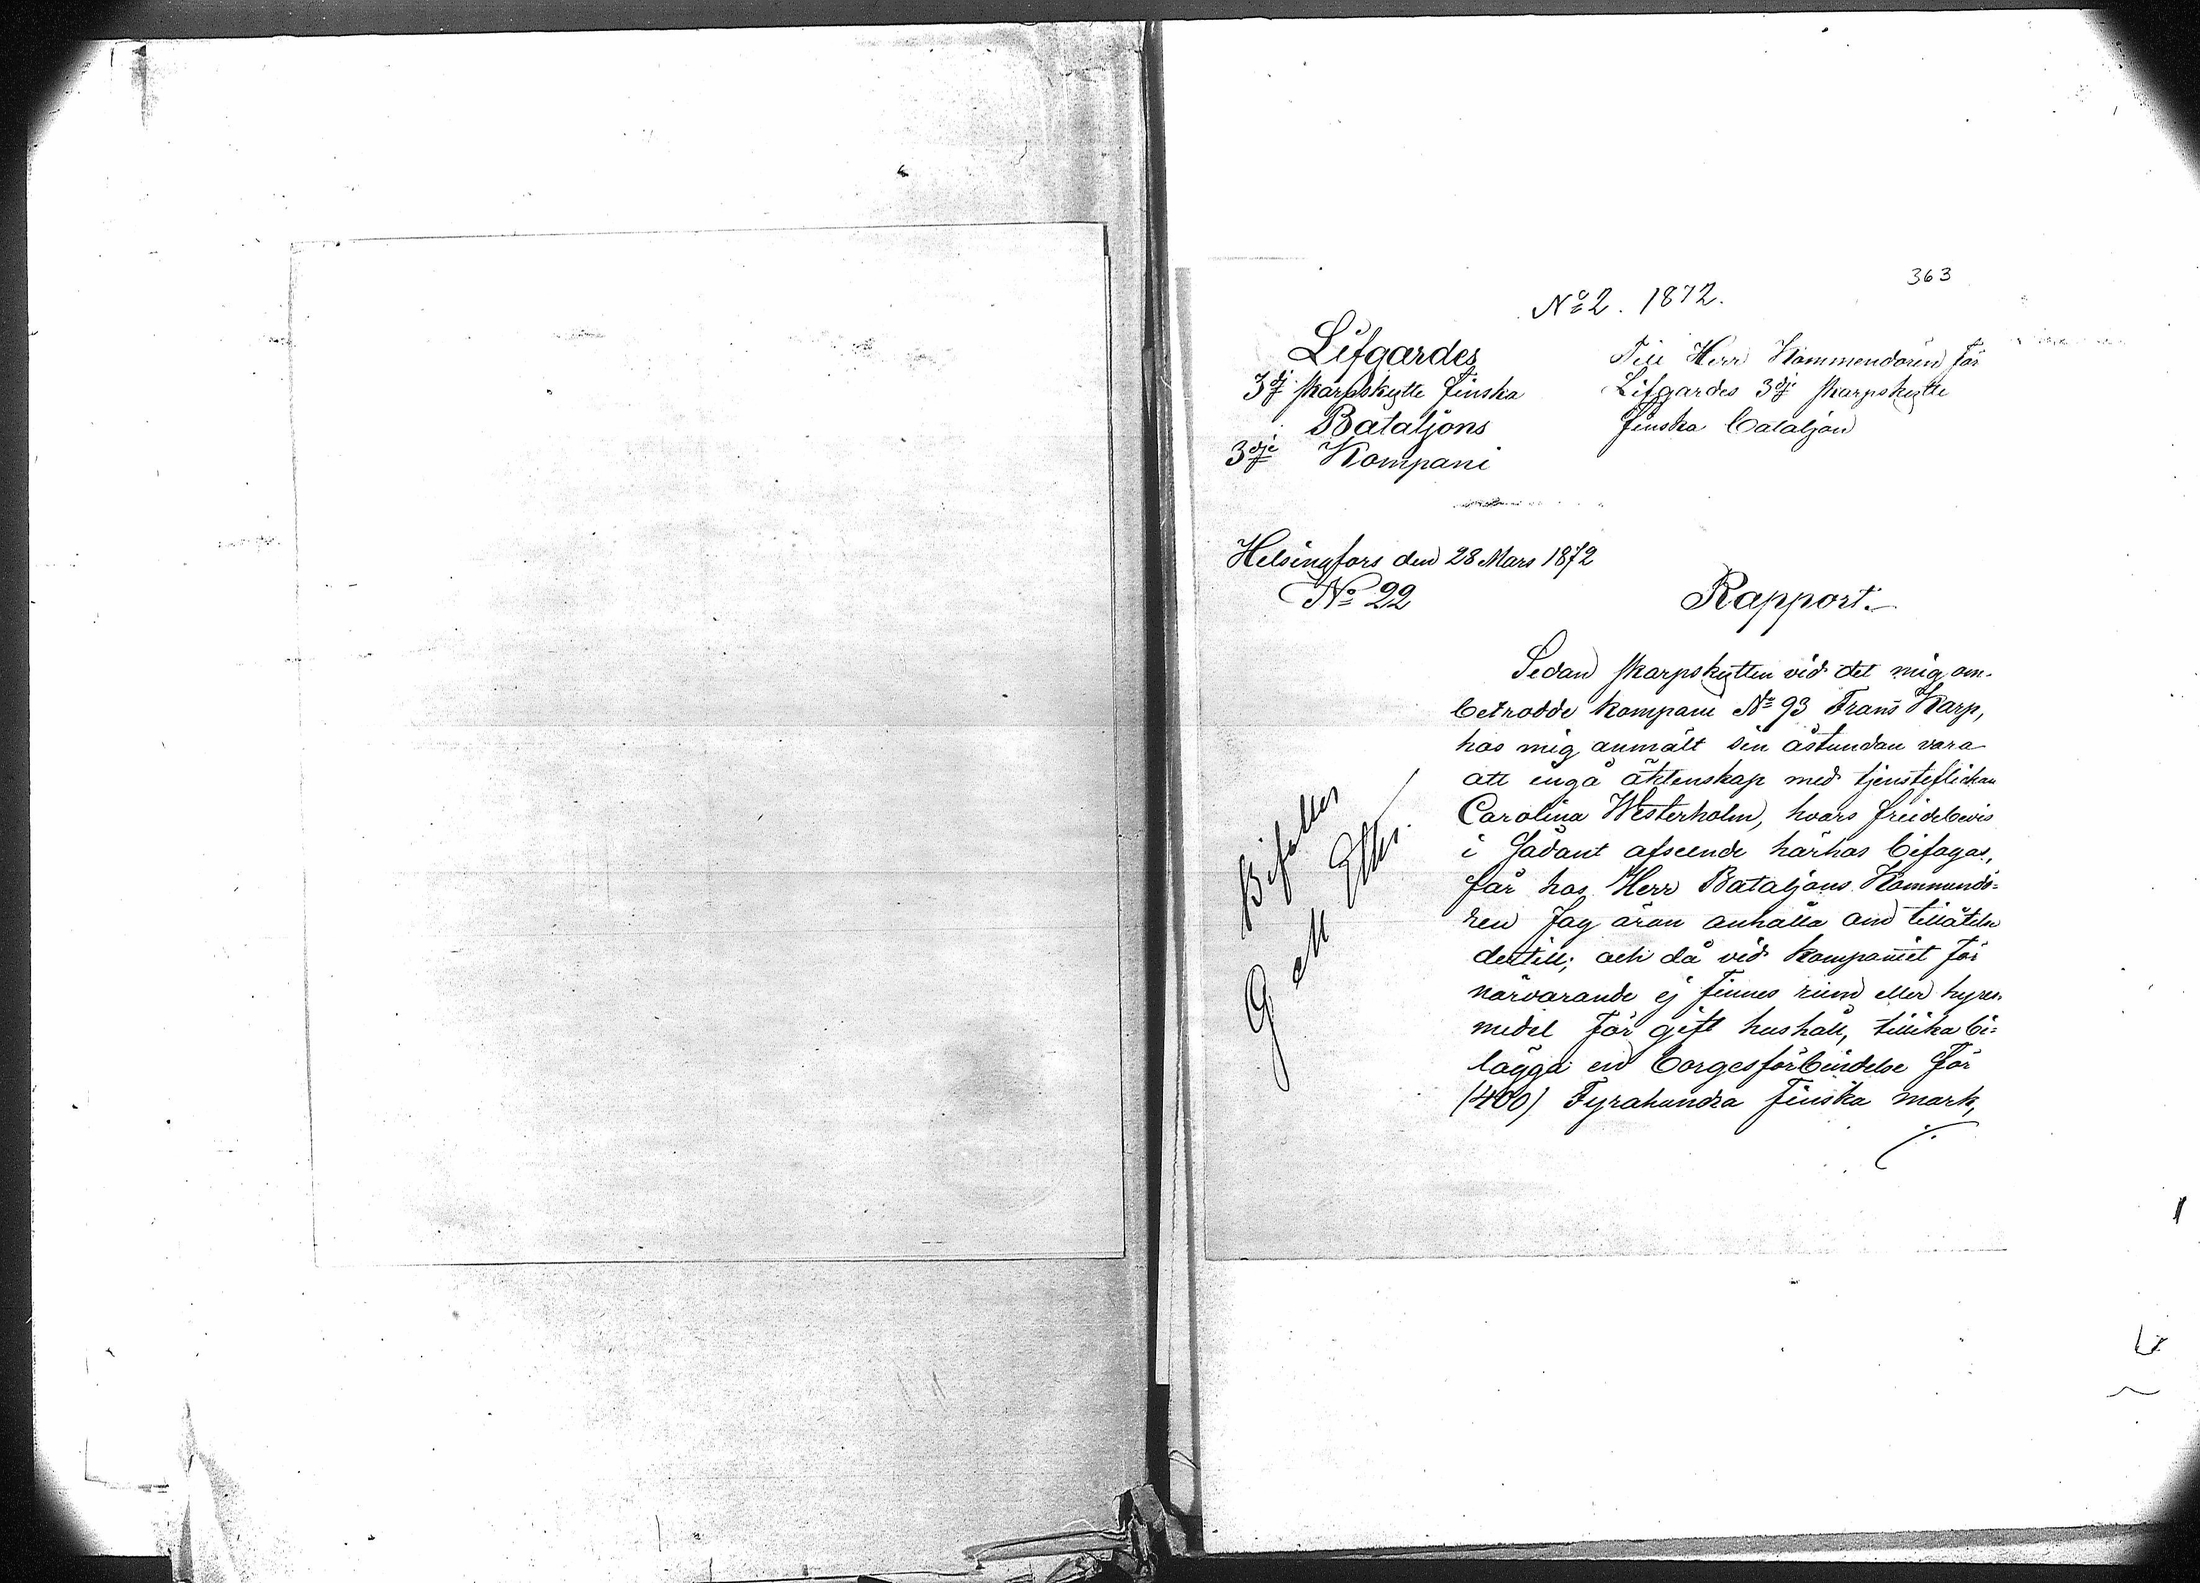 363
No 2. 1872.
Lifgardes
3dj skarpskytte Finska
Bataljons
3dje Kompani
Till Herr Kommendören för
Lifgardes 3dj skarpskytte
finska bataljon
Helsingfors den 28 Mars 1872
No 22
Rapport.
Sedan skarpskytten vid det mig om-
betrodde kompani No 93 Frans Karp,
hos mig anmält sin åstundan vara
att ingå äktenskap med tjensteflickan
Carolina Westerholm, hvars friidebevis
i sådant afseende härhos bifogas,
får hos Herr Bataljons Kommendö=
ren Jag äran anhålla om tillåtelse
dertill; och då vid kompaniet för
närvarande ej finnes rum eller hyres-
medel för gift hushåll, tillika bi=
lägga en borgesförbindelse för
(400) Fyrahundra Finska mark,
./.
Bifalles
G